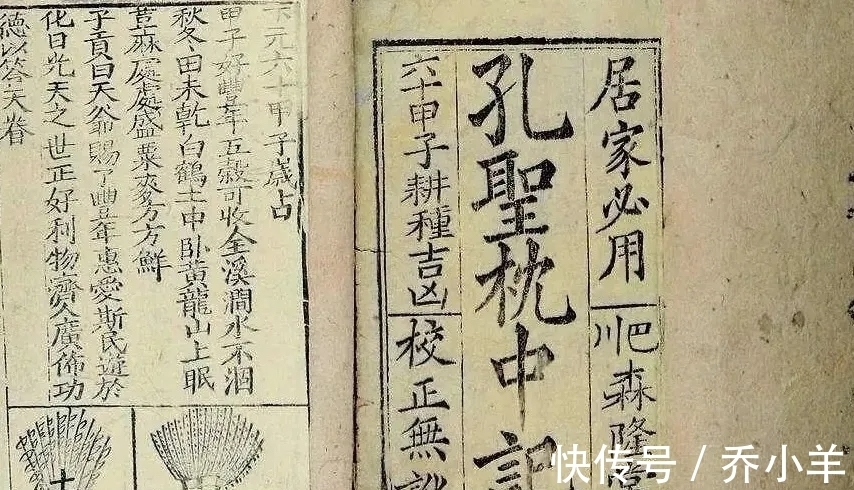 居家必用
川巴森隆
孔聖枕中記
六十甲子耕種吉凶
校正無
下元六十甲子歲占
甲子好豐年五穀可收全溪澗水不涸
秋冬田未乾白鶴土中卧黄龍山上眠
荳麻處處盛粟麥方方鮮
子貢曰天爺賜了豐年惠愛斯民遊於
化日光天之世正好利物濟人廣佈功
德以答天眷
十
快传号 / 乔小羊